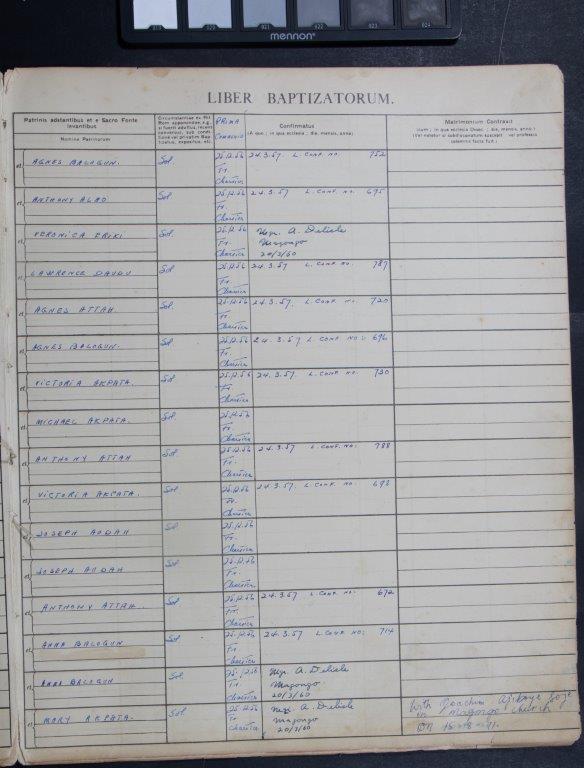 019 020 021 022 023 024
mennon
LIBER BAPTIZATORUM.
Patrinis adstantibus et e Sacro Fonte
levantibus
Nomina Patrinorum
Circumstantiae ex Rit.
Rom. apponendae, e.g.,
si fuerit adultus, recens
conversus, sub condi-
tione vel privatim Bap-
tizatus, expositus, etc.
PRIMA
COMMUNIO
Confirmatus
(A quo; in qua ecclesia; die, mensis, anno)
Matrimonium Contraxit
(cum; in qua ecclesia Dioec.; die, mensis, anno.)
(Vel notetur si subdiaconatum suscepit vel professio
solemnis facta fuit.)
et AGNES BALOGUN. Sol. 25.12.56 24.3.57. L. CONF. NO. 752
Fr.
et ANTHONY ALAO Sol. 25.12.56 24.3.57 L. CONF. NO. 695
Fr.
et VERONICA ERIKI Sol. 25.12.56 Mgr. A. Delisle
Fr. Magongo
20/3/60
et LAWRENCE DAUDU Sol. 25.12.56 24.3.57 L. CONF NO. 787
Fr.
et AGNES ATTAH. Sol. 25.12.56 24.3.57. L. CONF NO. 720
Fr.
et AGNES BALOGUN. Sol 25.12.56 24.3.57 L. CONF NO: 696
Fr.
et VICTORIA AKPATA. Sol. 25.12.56 24.3.57. L. CONF. NO. 730
Fr.
et MICHAEL AKPATA. Sol. 25.12.56
Fr.
et ANTHONY ATTAH Sol 25.12.56 24.3.57 L. CONF. NO: 788
Fr.
et VICTORIA AKPATA. Sol 25.12.56 24.3.57. L. CONF. NO.
Fr.
et JOSEPH AUDAH Sol 25.12.56
Fr.
et JOSEPH AUDAH Sol 25.12.56
Fr.
et ANTHONY ATTAH. Sol 25.12.56 24.3.57 L CONF. NO: 672
Fr.
et ANNA BALOGUN Sol 25.12.56 24.3.57 L CONF. NO: 714
Fr
et ANNA BALOGUN Sol. 25.12.56 Mgr. A. Delisle
Fr. Magongo
20/3/60
et MARY AKPATA. Sol 25.12.56 Mgr. A. Delisle
Fr. Magongo
20/3/60
With Joachim
in Magongo Church